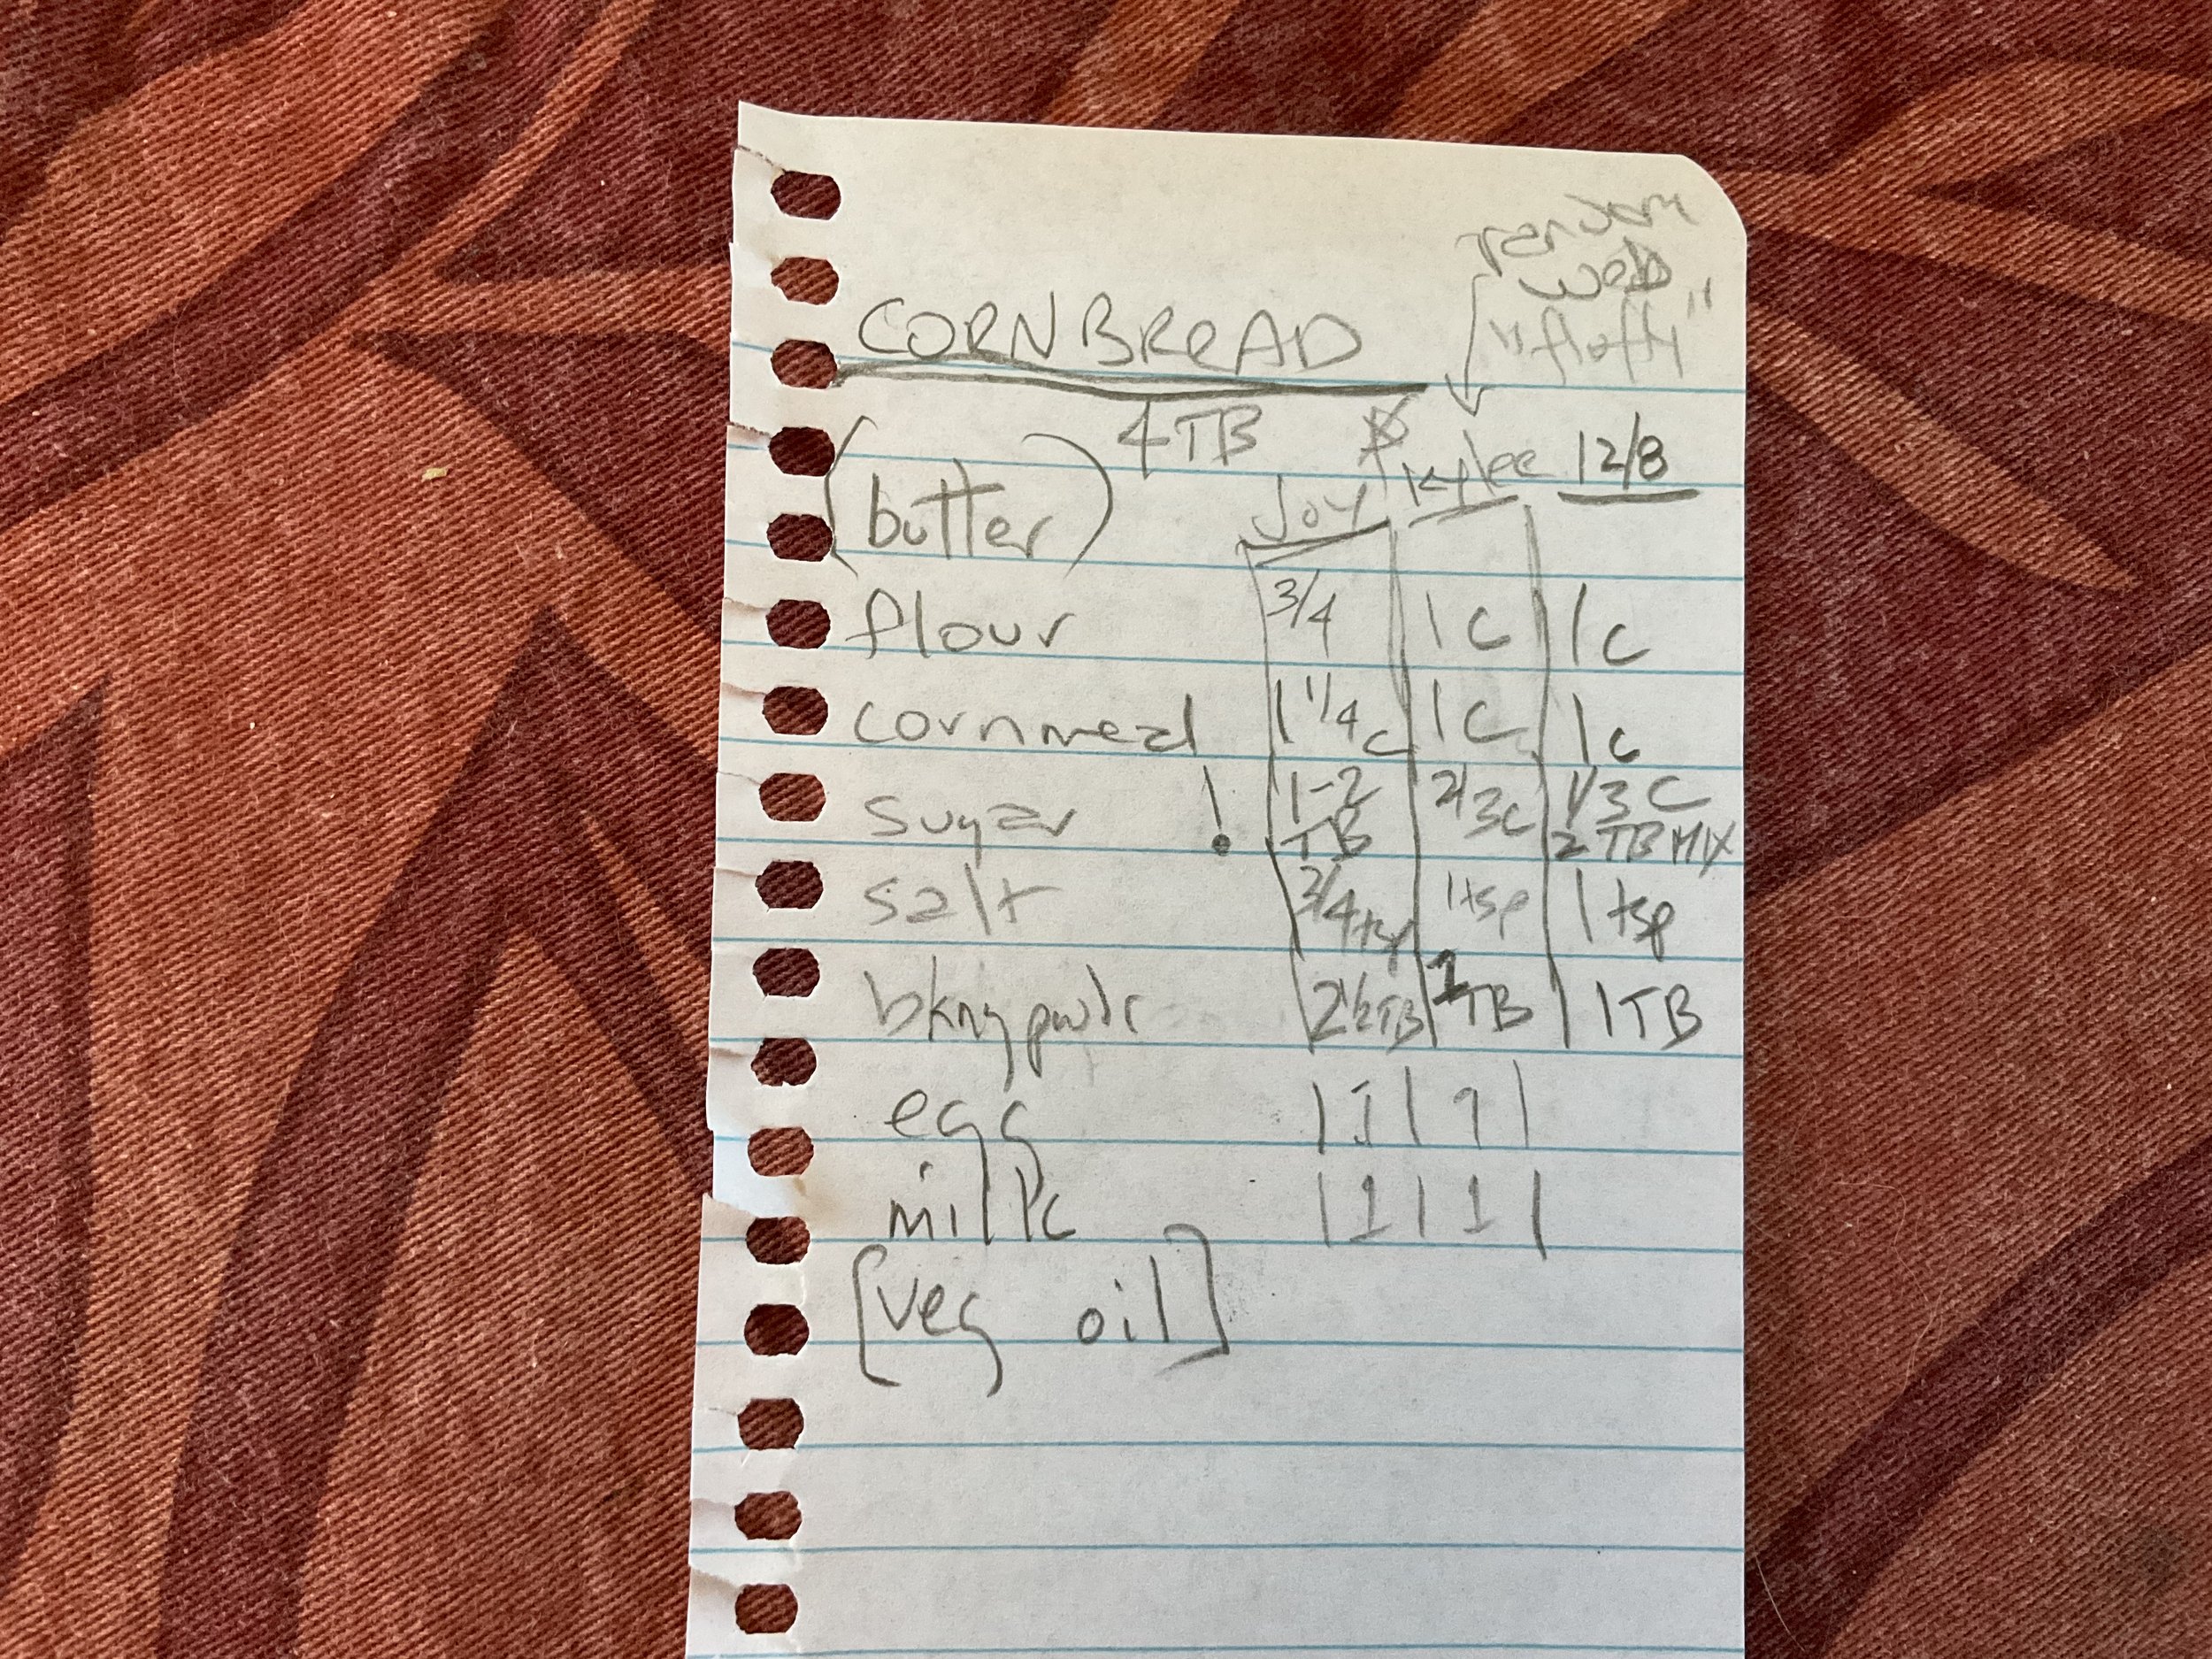 random
web
"fluffy"
CORNBREAD
4TB
(butter) Joy Kylee 12/8
flour 3/4 1C 1c
cornmeal 1 1/4 c 1C 1c
sugar ! 1-2 TB 2/3c 1/3 C
2 TB MIX
salt 3/4 tsp 1tsp 1 tsp
bkng pwdr 2 1/2 TB 1 TB 1TB
egg 1 1
milk 1 1
[veg oil]